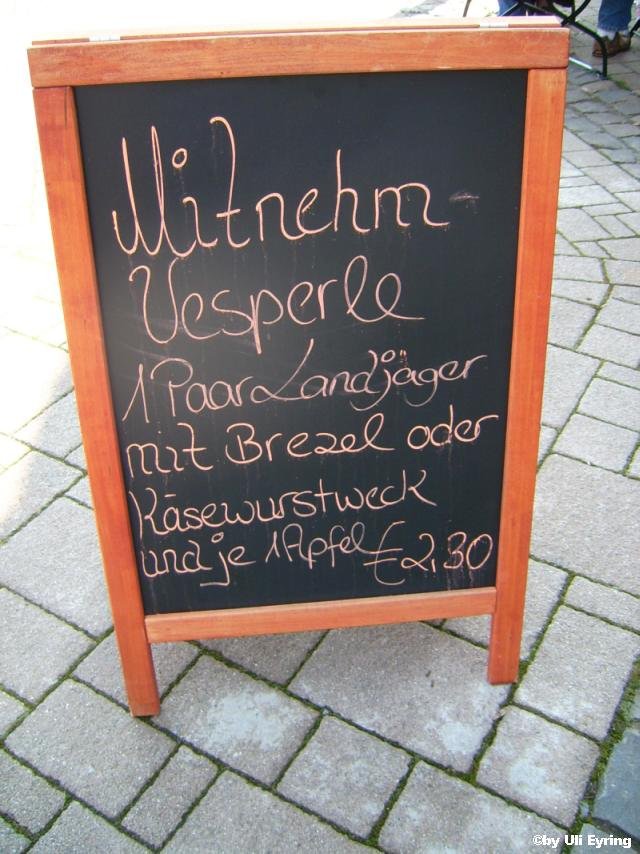 Mitnehm-
Vesperle
1 Paar Landjäger
mit Brezel oder
Käsewurstweck
und je 1 Apfel € 2,30
©by Uli Eyring